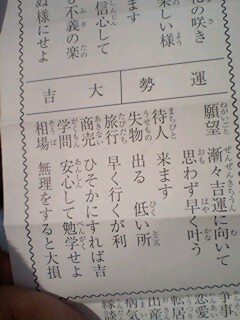 の咲き
楽しい様
ます
信心して
不義の楽
ぬ様にせよ
運勢 大吉
願望 漸々吉運に向いて
思わず早く叶う
待人 来ます
失物 出る 低い所
旅行 早く行くが利
商売 ひそかにすれば吉
学問 安心して勉学せよ
相場 無理をすると大損
争事
恋愛
転居
出産
病気
縁談